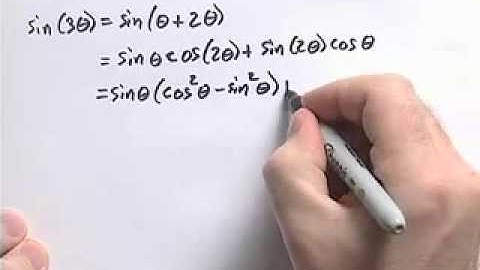 sin(3θ) = sin(θ + 2θ)
= sinθ cos(2θ) + sin(2θ) cosθ
= sinθ (cos²θ - sin²θ)